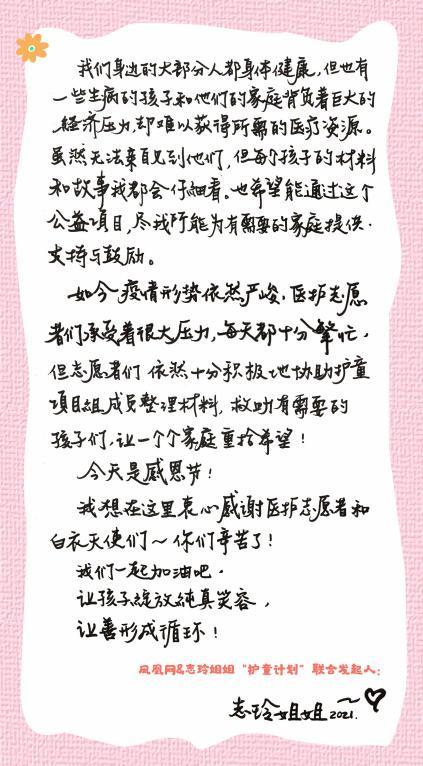 我们身边的大部分人都身体健康,但也有
一些生病的孩子和他们的家庭背负着巨大的
经济压力却难以获得所需的医疗资源。
虽然无法亲自见到他们,但每个孩子的材料
和故事我都会仔细看。也希望能通过这个
公益项目,尽我所能为有需要的家庭提供
支持与鼓励。
如今疫情形势依然严峻,医护志愿
者们承受着很大压力,每天都十分繁忙,
但志愿者们依然十分积极地协助护童
项目组成员整理材料,救助有需要的
孩子们,让一个个家庭重拾希望!
今天是感恩节!
我想在这里衷心感谢医护志愿者和
白衣天使们~你们辛苦了!
我们一起加油吧,
让孩子绽放纯真笑容,
让善形成循环!
凤凰网&志玲姐姐“护童计划”联合发起人:
志玲姐姐 2021.